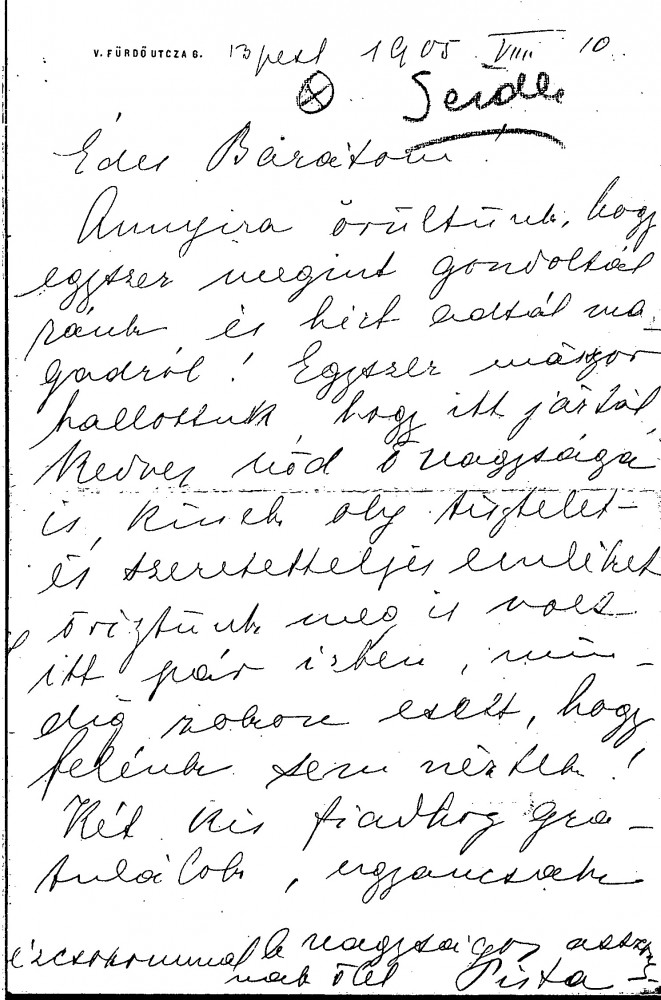 V. FÜRDŐ UTCZA 6. Bpest 1905 VIII 10
Édes Barátom!
Annyira örültünk, hogy
egyszer megint gondoltál
ránk és hirt adtál ma-
gadról! Egyszer másszor
hallottuk, hogy itt jártál,
kedves nőd ő nagysága
is, kinek oly tisztelet-
és szeretetteljes emlékét
őriztünk meg is volt
itt pár izben, min-
dig zokon esett, hogy
felénk sem néztek!
Két kis fiadhoz gra-
tulálok, ugyancsak
kézcsókommal a nagyságos asszony-
nak ölel Pista